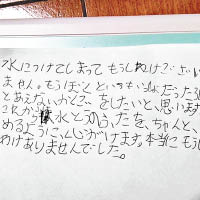 水につけてしまって もうしわけござい
ません。もうぼく といつもいっしょだった
とあえないかくごをしたいと、思います
これから水とうのふたを、ちゃんと、し
めるように、心がけます。本当にもうし
わけありませんでした。